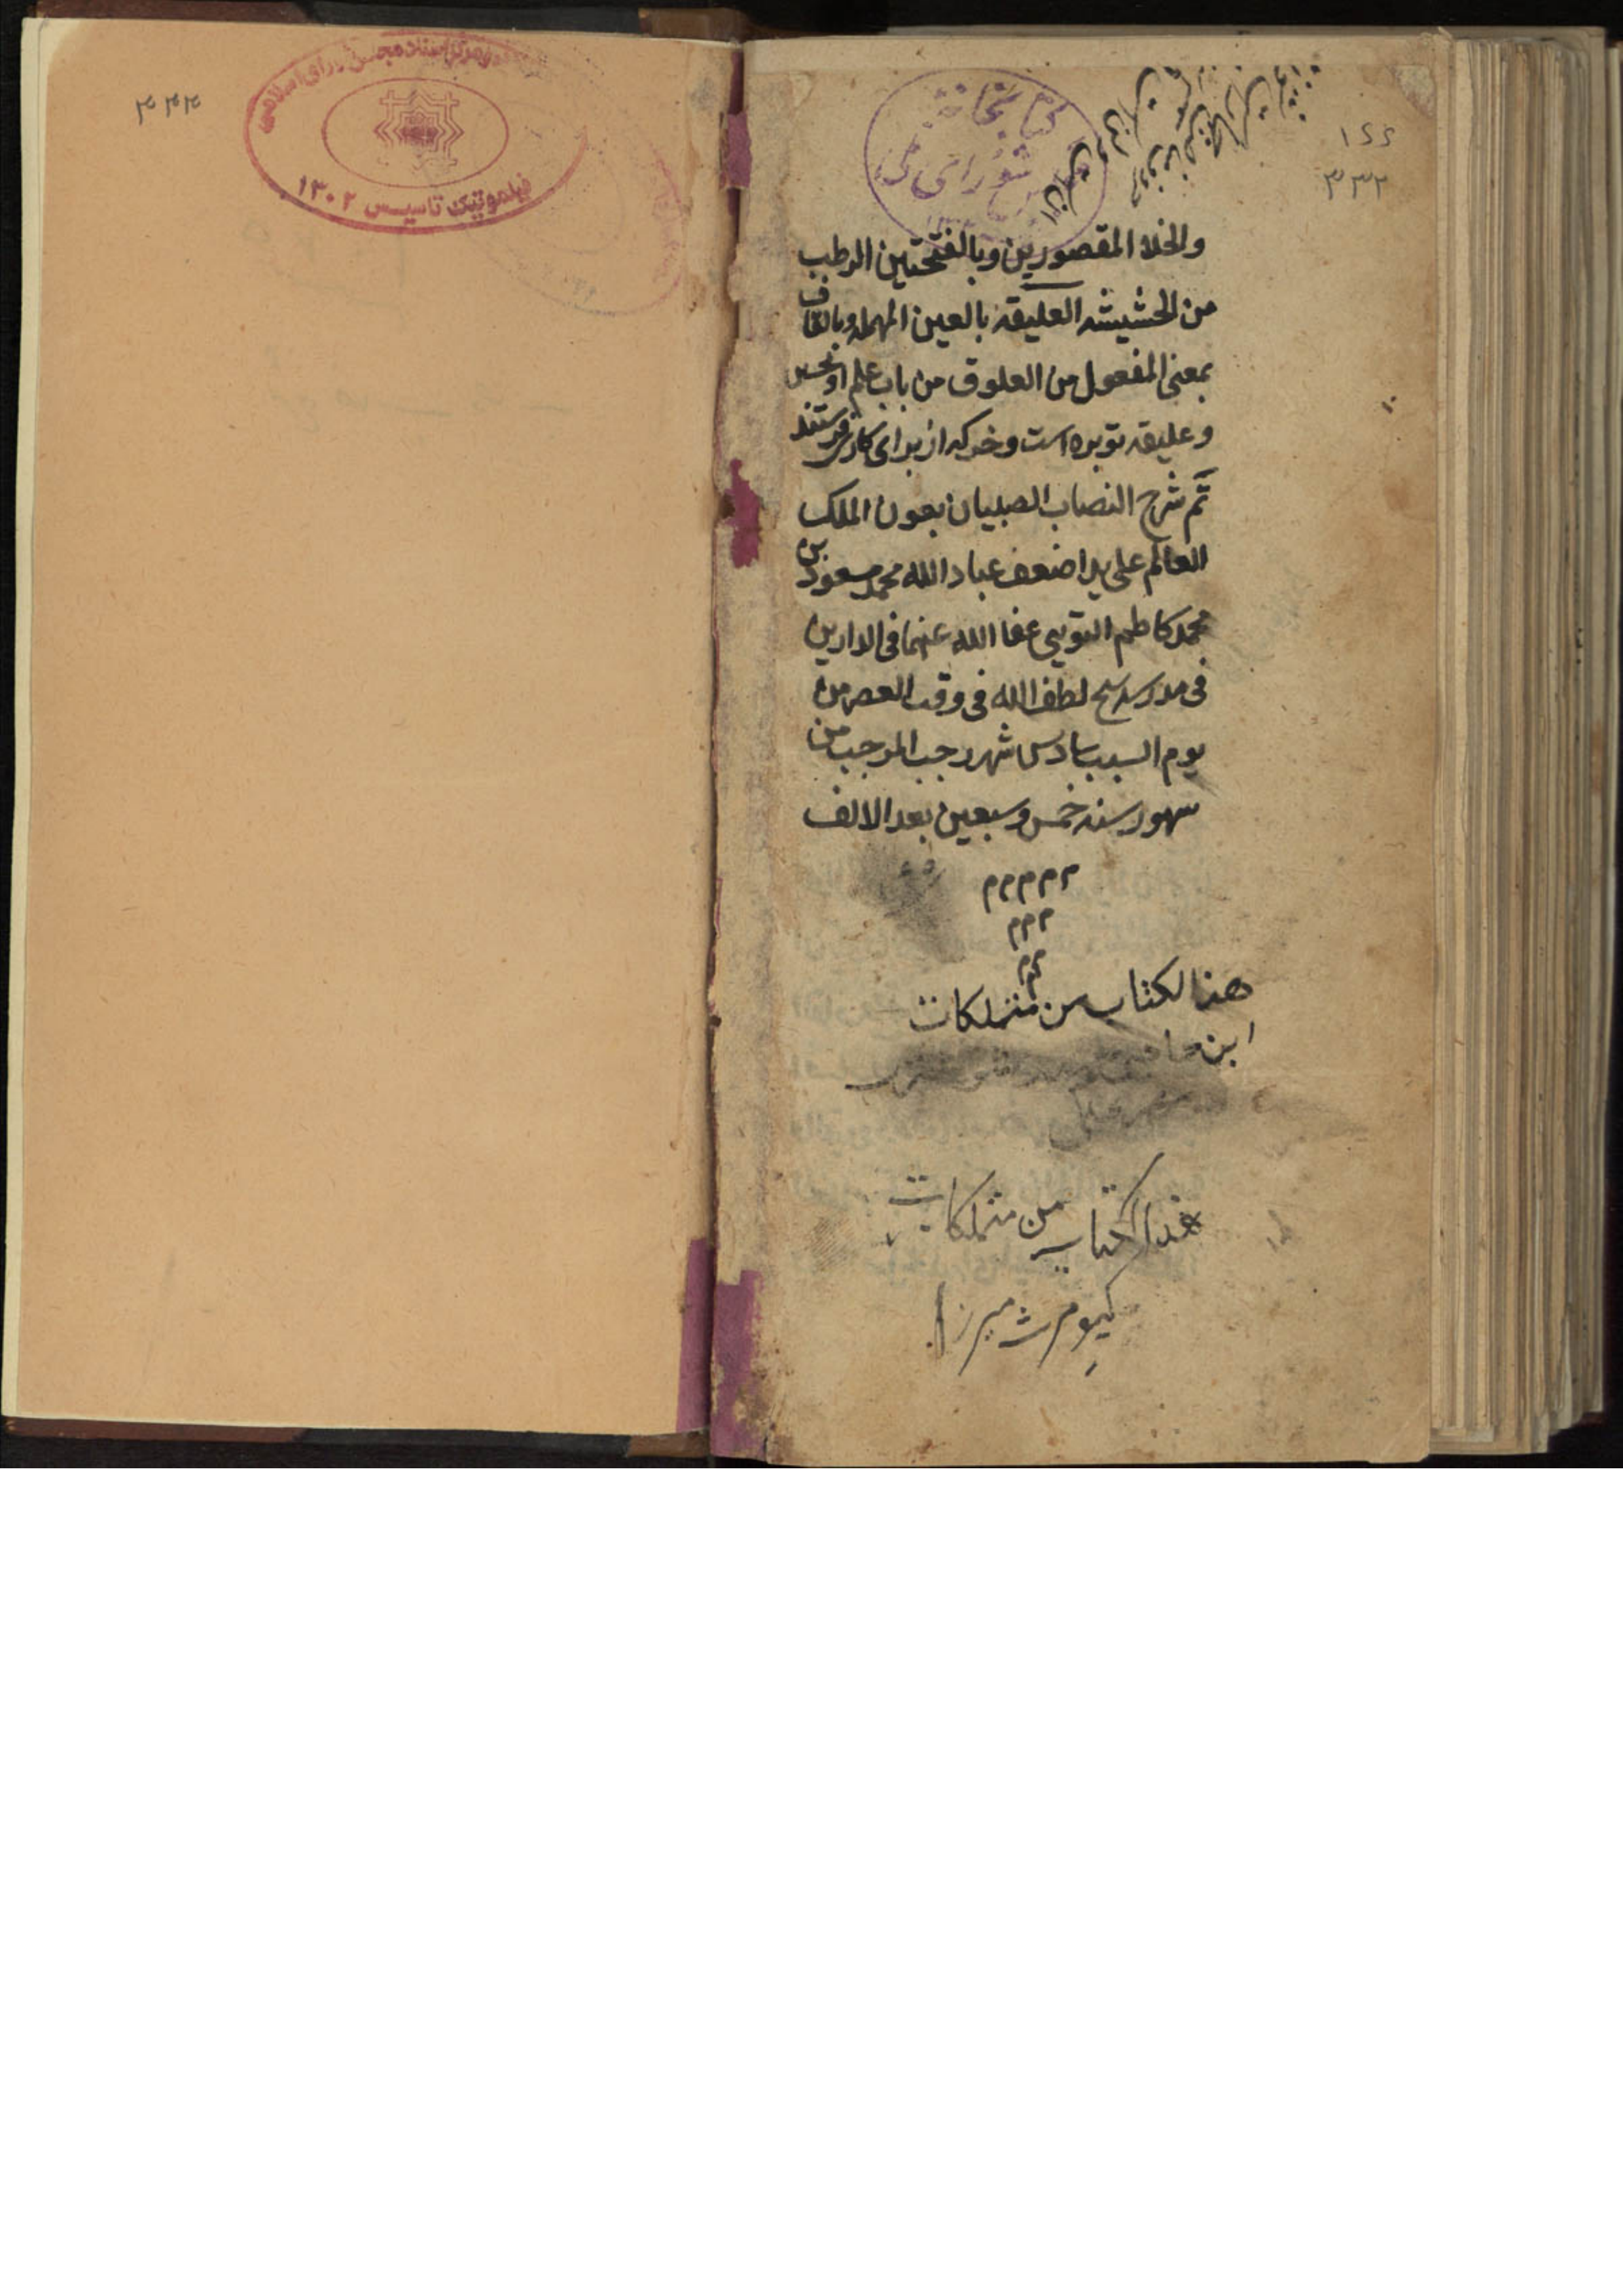 ۳۳۲
فیلموتیک تاسیس ۱۳۰۲
کتابخانه
شورای ملی
۱۶۶
۳۳۲
والخلا المقصورین وبالفتحتین الرطب
من الحشیشه العلیقه بالعین المهمله وبالقاف
بمعنی المفعول من العلوق من باب علم او
وعلیقه توبره است وخر که از برای کاری فرستند
تم شرح النصاب الصبیان بعون الملک
العالم علی ید اضعف عباد الله محمد مسعود بن
محمد کاظم التویی عفا الله عنهما فی الدارین
فی مدرسه شیخ لطف الله فی وقت العصر من
یوم السبت سادس شهر رجب المرجب من
شهور سنه خمس وسبعین بعد الالف
م م م م م
م م م
م م
هذالکتاب من متملکات
ابن
هذا الکتاب من متملکات
کیومرث میرزا